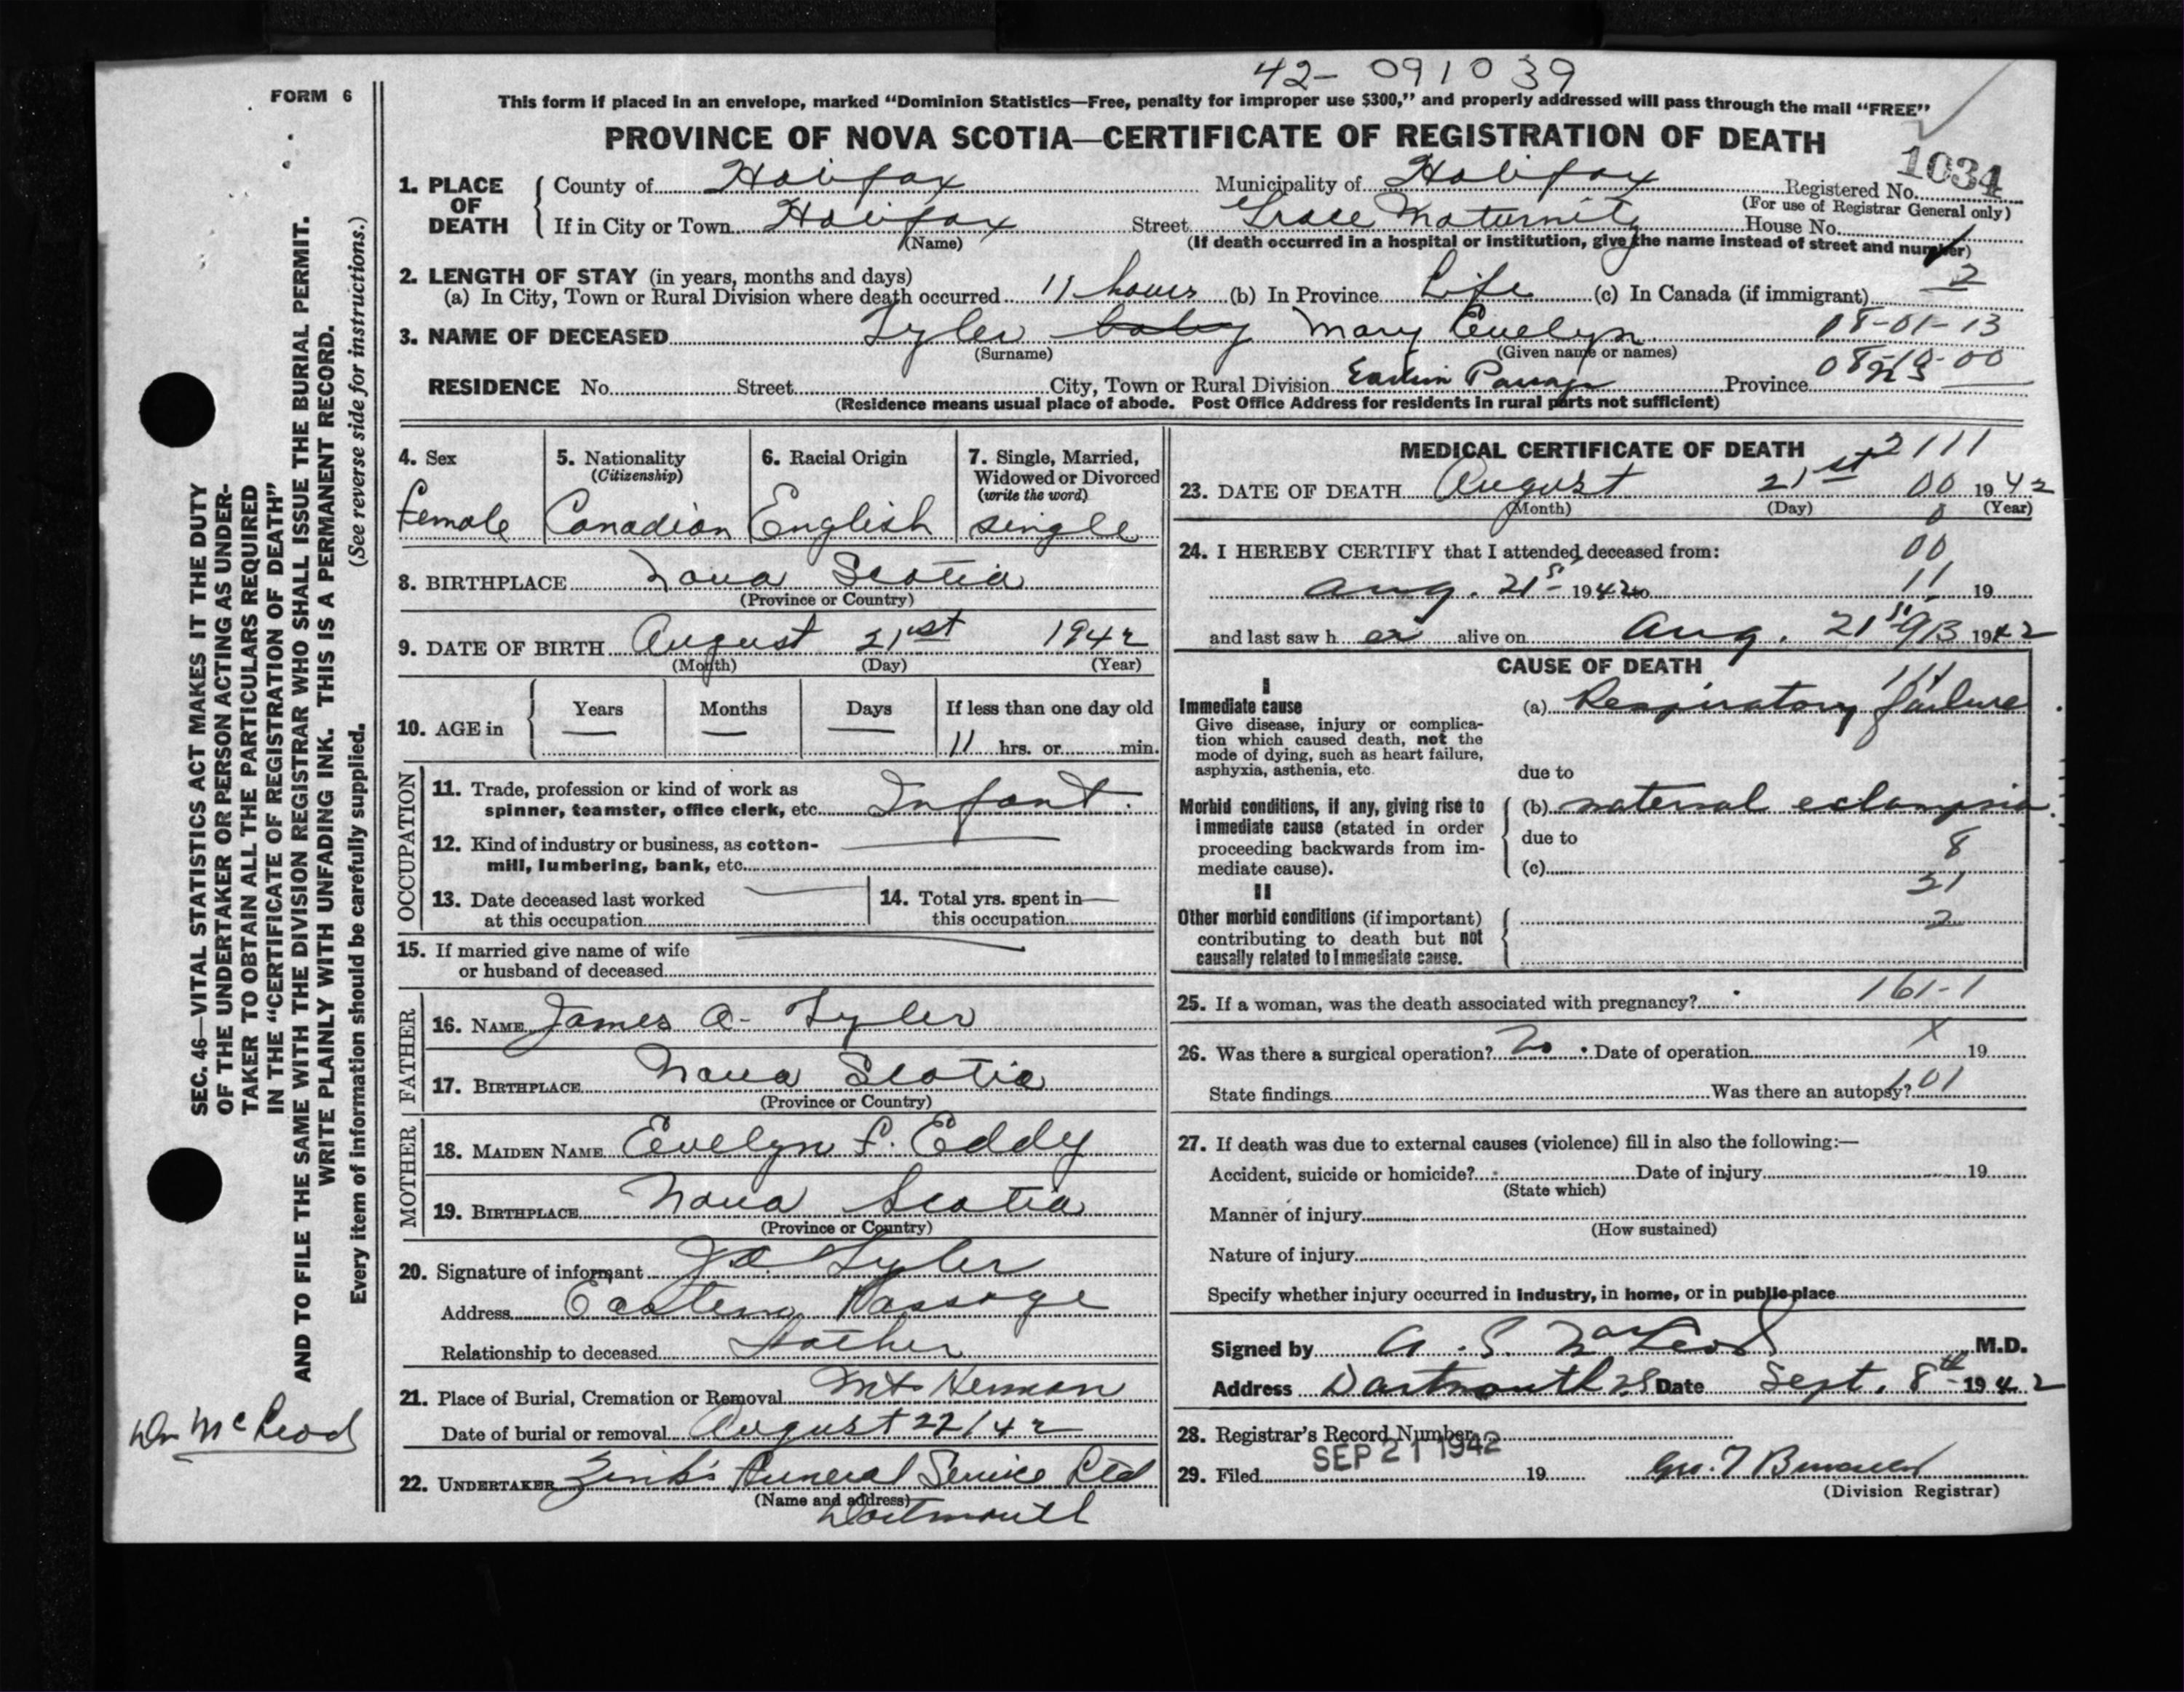 42- 091039
FORM 6
This form if placed in an envelope, marked "Dominion Statistics—Free, penalty for improper use $300," and properly addressed will pass through the mail "FREE"
PROVINCE OF NOVA SCOTIA—CERTIFICATE OF REGISTRATION OF DEATH
1034
1. PLACE OF DEATH County of Halifax Municipality of Halifax Registered No.
(For use of Registrar General only)
If in City or Town Halifax Street Grace Maternity House No.
(Name) (If death occurred in a hospital or institution, give the name instead of street and number)
2. LENGTH OF STAY (in years, months and days) 2
(a) In City, Town or Rural Division where death occurred 11 hours (b) In Province Life (c) In Canada (if immigrant)
3. NAME OF DECEASED Tyler baby Mary Evelyn 08-01-13
(Surname) (Given name or names)
RESIDENCE No. Street City, Town or Rural Division Eastern Passage Province 08-10-00
(Residence means usual place of abode. Post Office Address for residents in rural parts not sufficient)
4. Sex 5. Nationality (Citizenship) 6. Racial Origin 7. Single, Married, Widowed or Divorced (write the word)
female Canadian English single
8. BIRTHPLACE Nova Scotia
(Province or Country)
9. DATE OF BIRTH August 21st 1942
(Month) (Day) (Year)
10. AGE in Years Months Days If less than one day old
— — — 11 hrs. or min.
OCCUPATION
11. Trade, profession or kind of work as
spinner, teamster, office clerk, etc. Infant.
12. Kind of industry or business, as cotton-
mill, lumbering, bank, etc. —
13. Date deceased last worked — 14. Total yrs. spent in —
at this occupation this occupation
15. If married give name of wife —
or husband of deceased
FATHER
16. NAME James A. Tyler
17. BIRTHPLACE Nova Scotia
(Province or Country)
MOTHER
18. MAIDEN NAME Evelyn F. Eddy
19. BIRTHPLACE Nova Scotia
(Province or Country)
20. Signature of informant J A Tyler
Address Eastern Passage
Relationship to deceased Father
21. Place of Burial, Cremation or Removal Mt Hermon
Date of burial or removal August 22/42
22. UNDERTAKER Zink's Funeral Service Ltd
(Name and address)
Dartmouth
MEDICAL CERTIFICATE OF DEATH 2111
23. DATE OF DEATH August 21st 00 1942
(Month) (Day) (Year)
24. I HEREBY CERTIFY that I attended deceased from: 00
Aug. 21st 1942 to 11 19
and last saw h er alive on Aug. 21st 1942
CAUSE OF DEATH
I
Immediate cause (a) Respiratory failure
Give disease, injury or complica-
tion which caused death, not the
mode of dying, such as heart failure,
asphyxia, asthenia, etc.
due to
Morbid conditions, if any, giving rise to (b) maternal eclampsia.
immediate cause (stated in order
proceeding backwards from im-
mediate cause).
due to 8
(c)
21
II
Other morbid conditions (if important) 2
contributing to death but not
causally related to immediate cause.
25. If a woman, was the death associated with pregnancy? 161-1
26. Was there a surgical operation? No. Date of operation X 19
State findings Was there an autopsy? 101
27. If death was due to external causes (violence) fill in also the following:—
Accident, suicide or homicide? Date of injury 19
(State which)
Manner of injury
(How sustained)
Nature of injury
Specify whether injury occurred in industry, in home, or in public place
Signed by A. S. MacLeod M.D.
Address Dartmouth NS Date Sept. 8th 1942
28. Registrar's Record Number
29. Filed SEP 21 1942 19
(Division Registrar)
SEC. 46—VITAL STATISTICS ACT MAKES IT THE DUTY
OF THE UNDERTAKER OR PERSON ACTING AS UNDER-
TAKER TO OBTAIN ALL THE PARTICULARS REQUIRED
IN THE "CERTIFICATE OF REGISTRATION OF DEATH"
AND TO FILE THE SAME WITH THE DIVISION REGISTRAR WHO SHALL ISSUE THE BURIAL PERMIT.
WRITE PLAINLY WITH UNFADING INK. THIS IS A PERMANENT RECORD.
Every item of information should be carefully supplied. (See reverse side for instructions.)
Dr McLeod